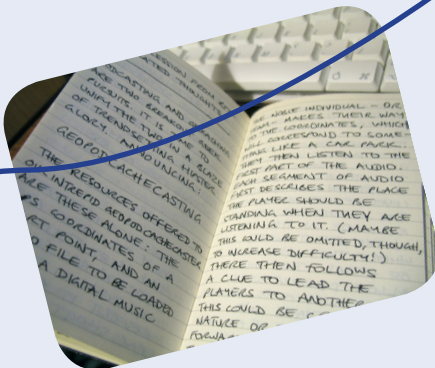 PODCASTING AND
ARE TWO BREAD
PURSUITS. IT IS
UNIFY THE TWO IN A BLAZE
OF TRANSCENDING HIPSTER
GLORY. ANNOUNCING:
GEOPODCACHECASTING
THE RESOURCES OFFERED TO
OUR INTREPID GEOPODCACHECASTER
ARE THESE ALONE: THE
COORDINATES OF A
POINT, AND AN
FILE TO BE LOADED
A DIGITAL MUSIC
INDIVIDUAL – OR
MAKES THEIR WAY
COORDINATES, WHICH
WILL CORRESPOND TO SOME-
THING LIKE A CAR PARK.
THEY THEN LISTEN TO THE
FIRST PART OF THE AUDIO.
EACH SEGMENT OF AUDIO
FIRST DESCRIBES THE PLACE
THE PLAYER SHOULD BE
STANDING WHEN THEY ARE
LISTENING TO IT. (MAYBE
THIS COULD BE OMITTED, THOUGH,
TO INCREASE DIFFICULTY!)
THERE THEN FOLLOWS
A CLUE TO LEAD THE
PLAYERS TO ANOTHER
THIS COULD BE
NATURE OR